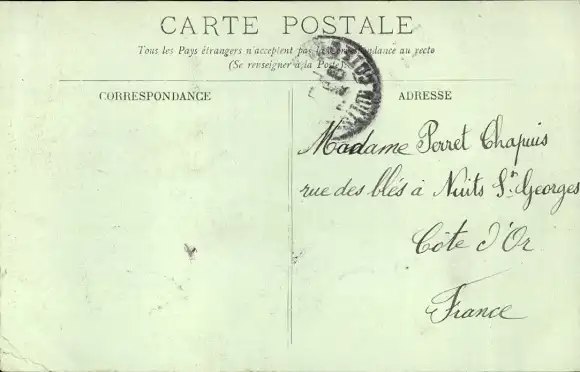 CARTE POSTALE
Tous les Pays étrangers n'acceptent pas la Correspondance au recto
(Se renseigner à la Poste).
CORRESPONDANCE
ADRESSE
Madame Perret Chapuis
rue des blés à Nuits St. Georges
Côte d'Or
France